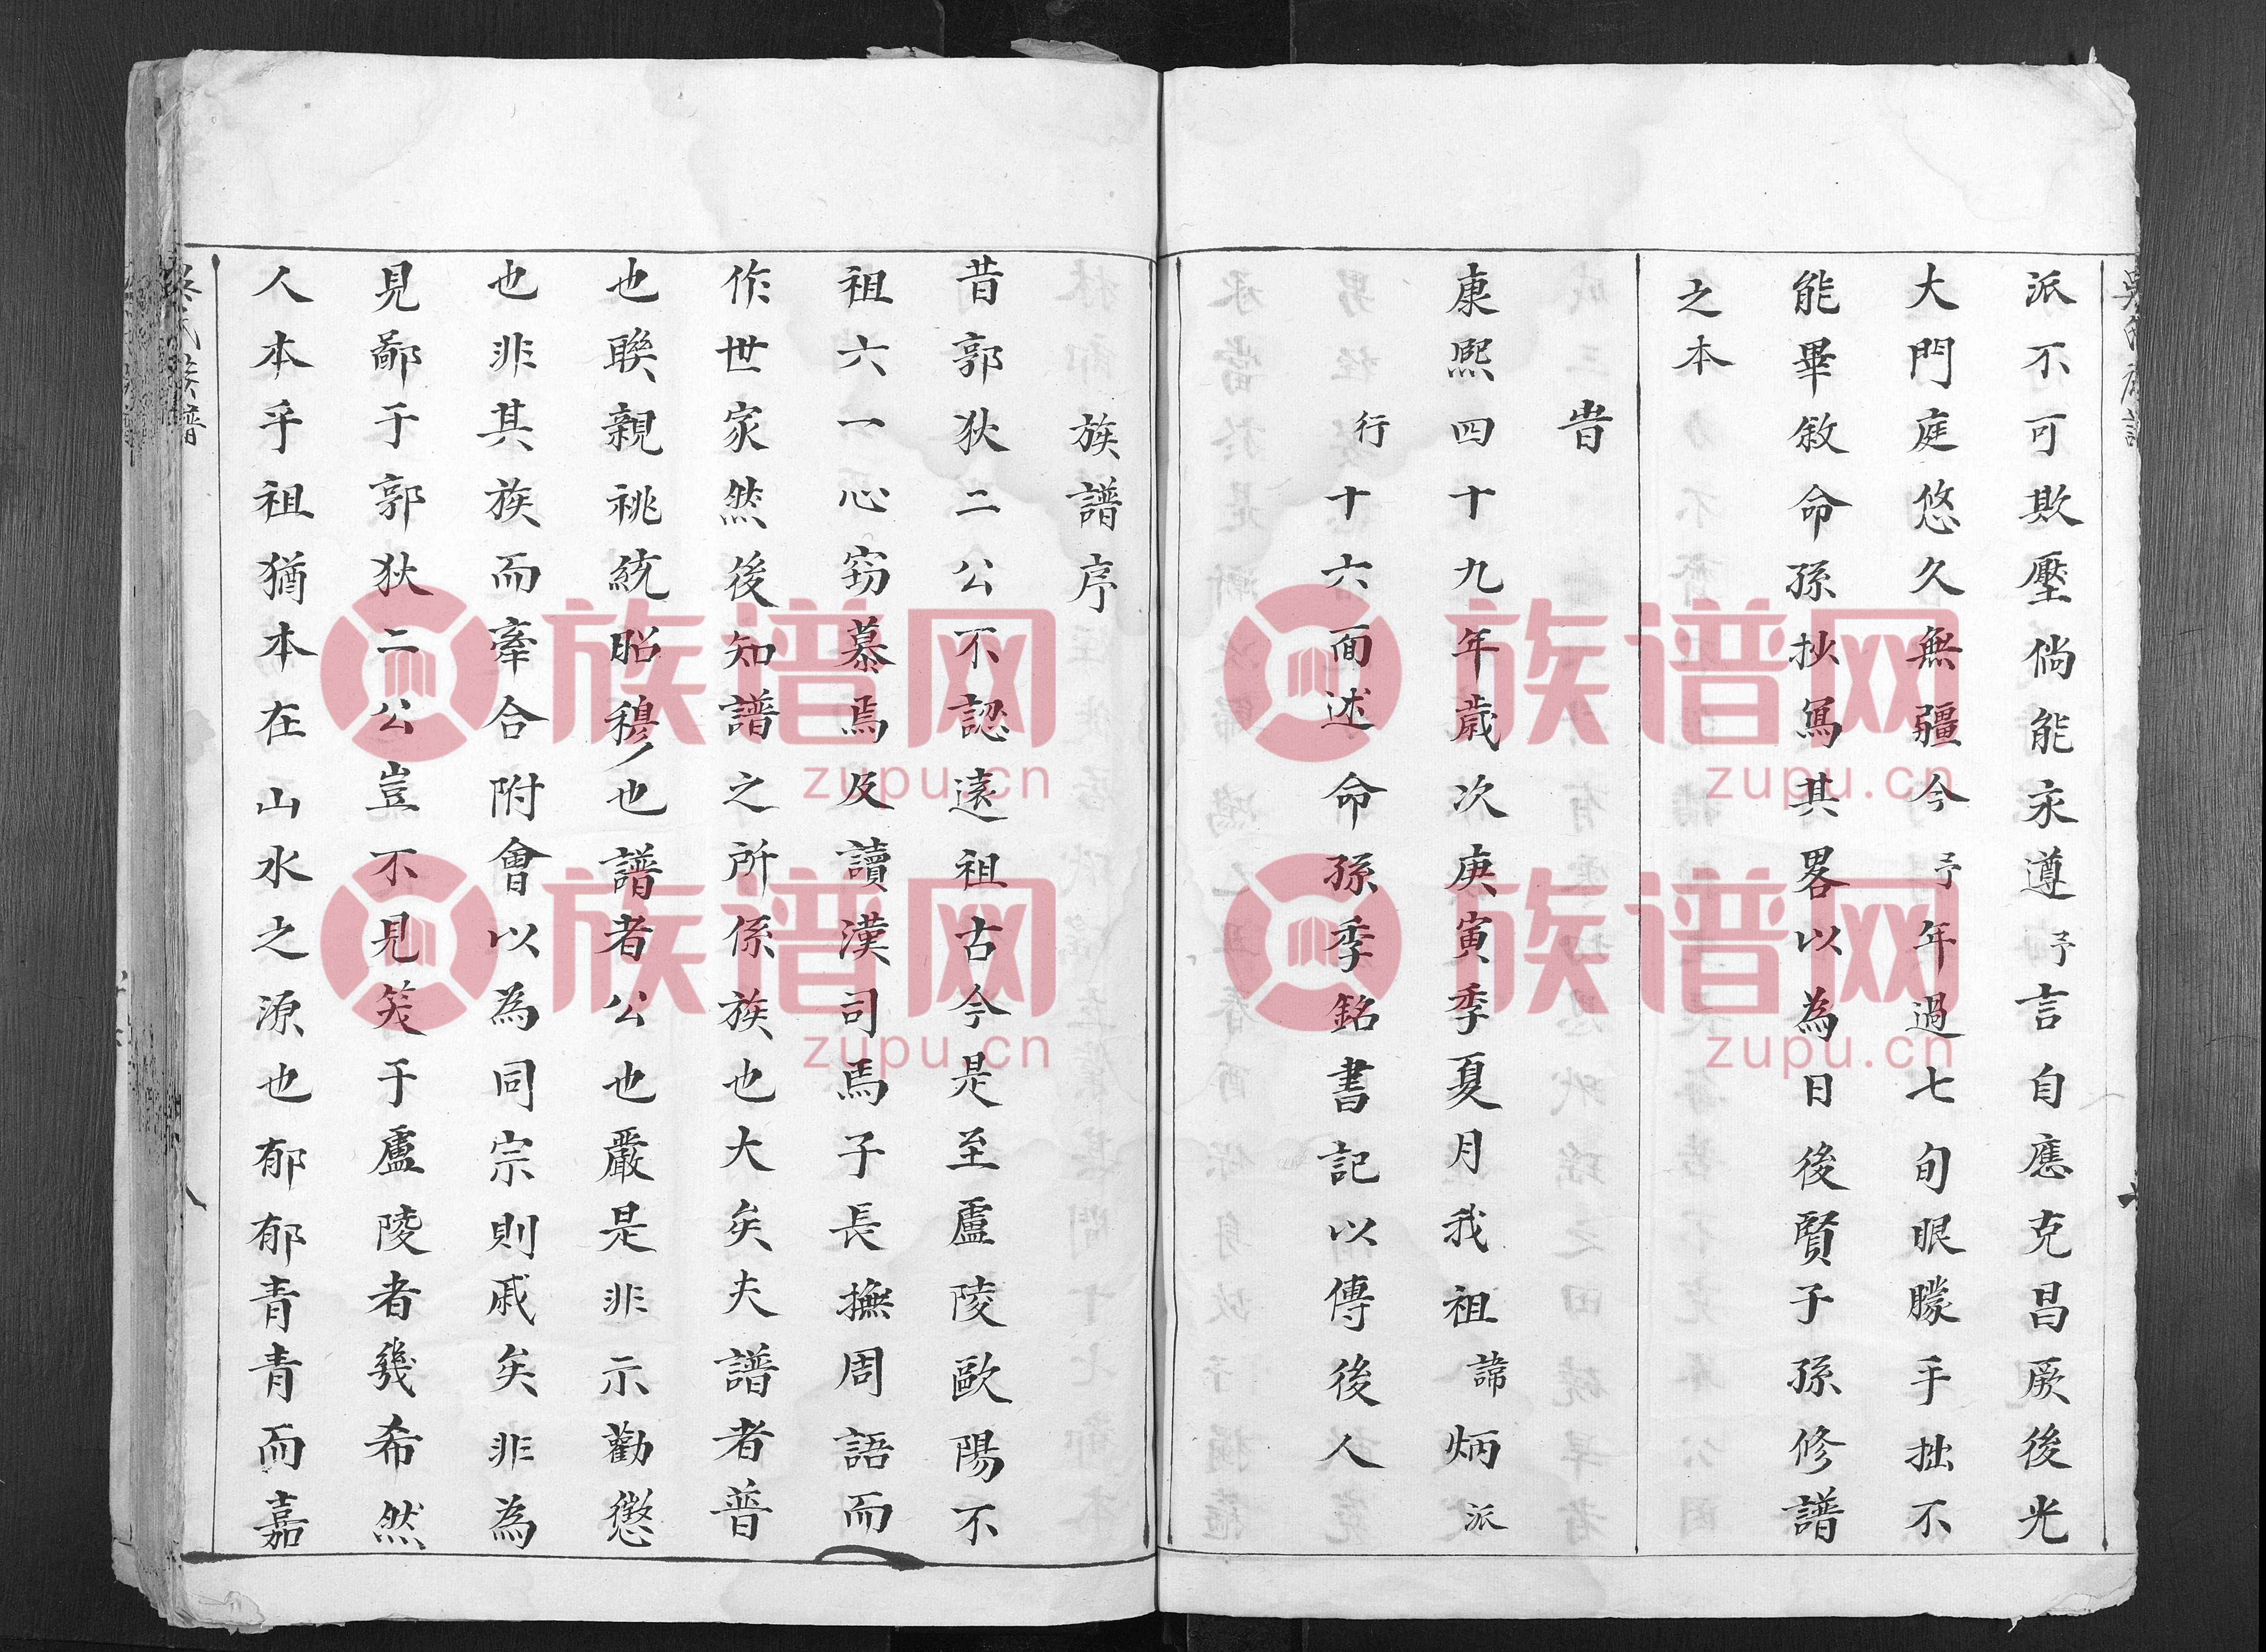 派不可欺壓倘能永遵予言自應克昌厥後光
大門庭悠久無疆今予年過七旬眼朦手拙不
能畢敘命孫抄寫其畧以為日後賢子孫修譜
之本
旹
康熙四十九年歲次庚寅季夏月我祖諱炳派
行十六面述命孫季銘書記以傳後人
族譜序
昔郭狄二公不認遠祖古今是至盧陵歐陽不
祖六一心窃慕焉及讀漢司馬子長撫周語而
作世家然後知譜之所係族也大矣夫譜者普
也聯親祧統昭穆也譜者公也嚴是非示勸懲
也非其族而牽合附會以為同宗則戚矣非為
見鄙于郭狄二公豈不見笑于盧陵者幾希然
人本乎祖猶本在山水之源也郁郁青青而嘉
族譜
八
族谱网
zupu.cn
族谱网
zupu.cn
族谱网
zupu.cn
族谱网
zupu.cn